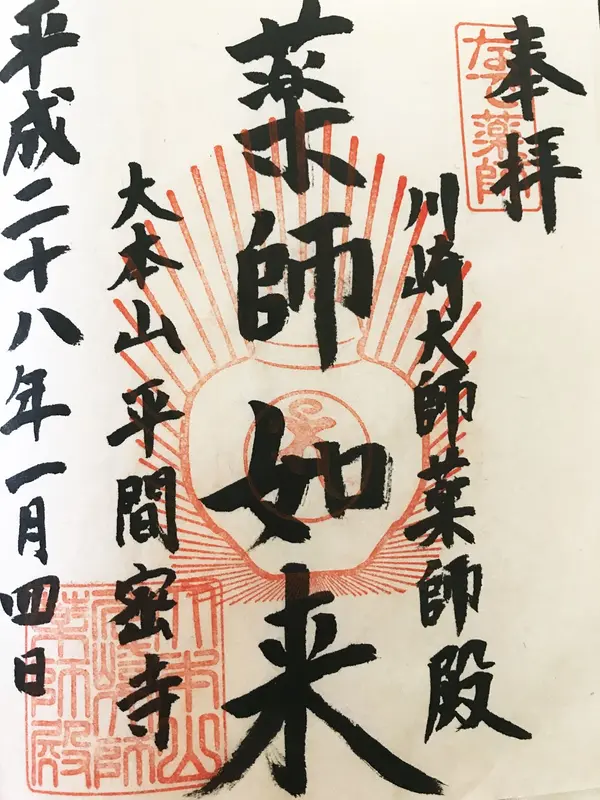 奉拝
なで薬師
川崎大師薬師殿
薬師如来
大本山 平間密寺
平成二十八年一月四日
大本山
薬師殿